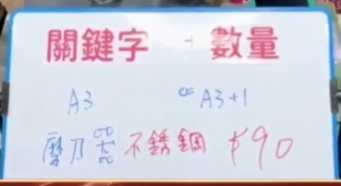 關鍵字 + 數量
A3 A3+1
磨刀器 不銹鋼 $90